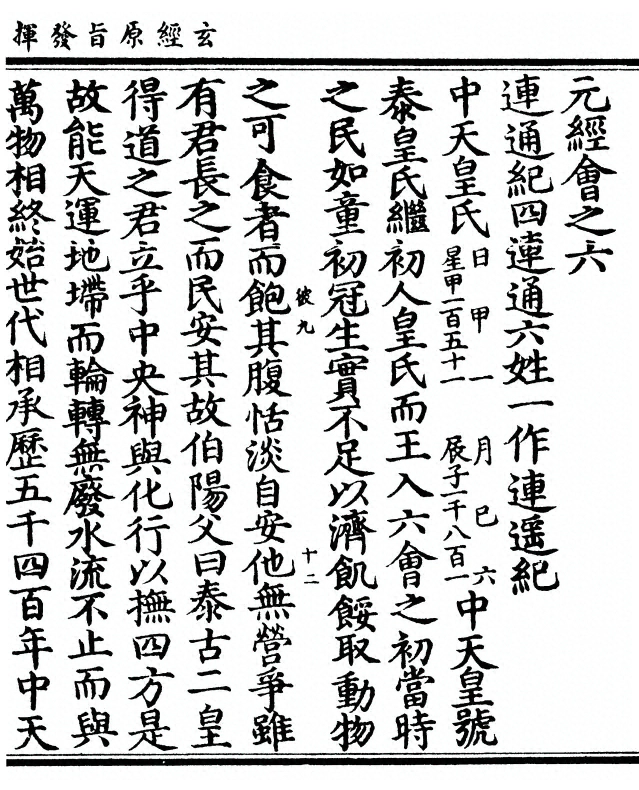 玄經原旨發揮
元經會之六
連通紀四連通六姓一作連遥紀
中天皇氏日甲一月巳六星甲一百五十一辰子一千八百一中天皇號
泰皇氏繼初人皇氏而王入六會之初當時
之民如童初冠生實不足以濟飢餒取動物
之可食者而飽其腹恬淡自安他無營爭雖
彼九
十二
有君長之而民安其故伯陽父曰泰古二皇
得道之君立乎中央神與化行以撫四方是
故能天運地墆而輪轉無廢水流不止而與
萬物相終始世代相承歷五千四百年中天